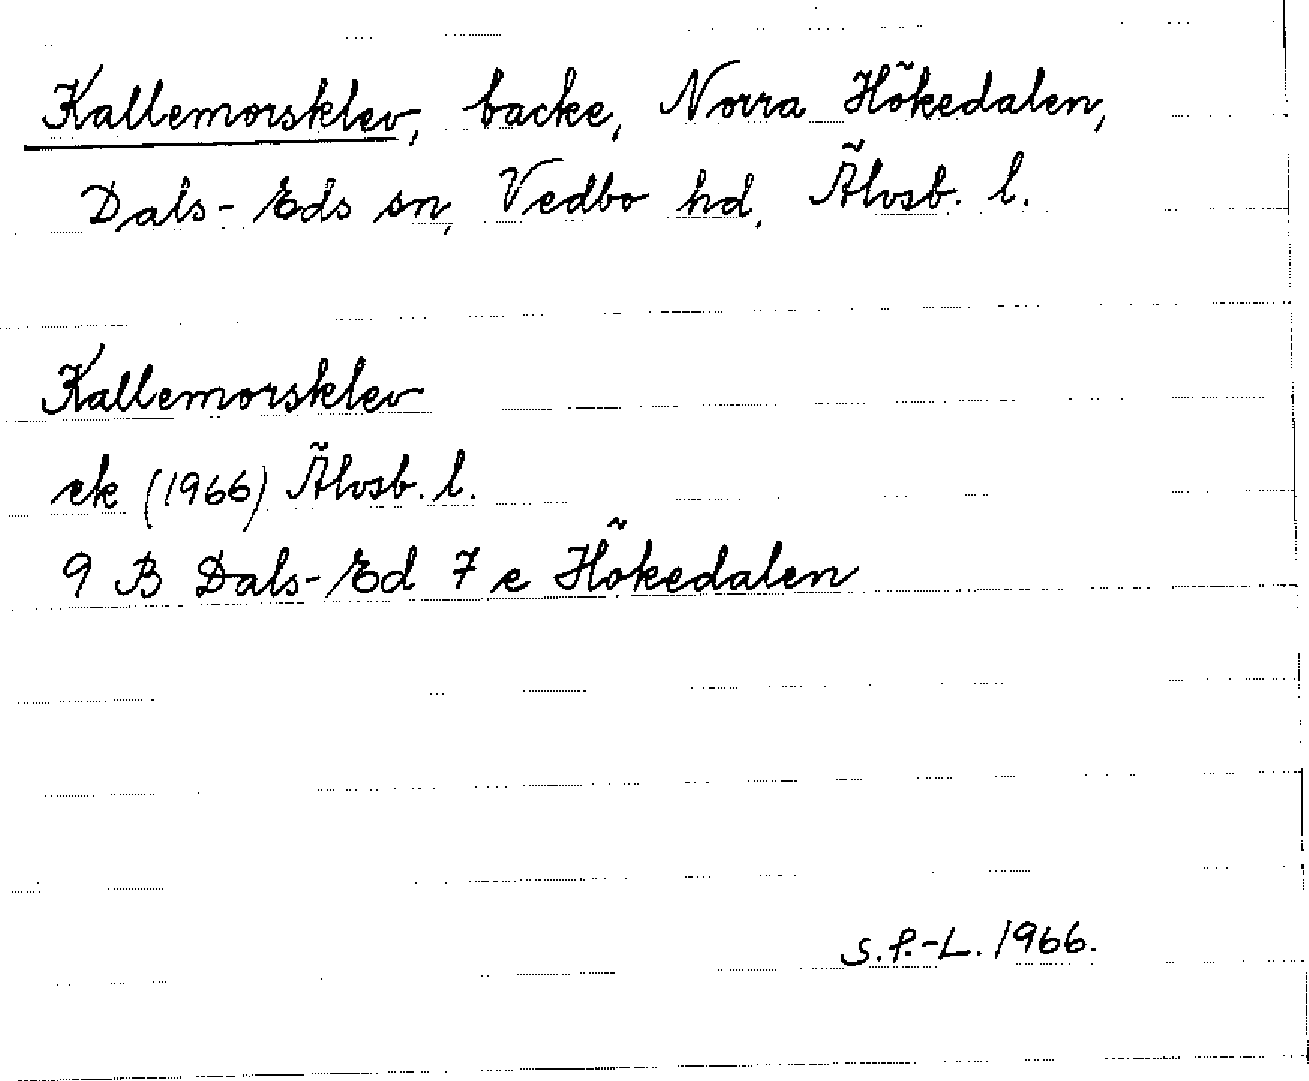 Kallemorsklev, backe, Norra Hökedalen,
Dals-Eds sn, Vedbo hd, Älvsb. l.
Kallemorsklev
ek (1966) Älvsb. l.
9 B Dals-Ed 7 e Hökedalen
S.P.-L. 1966.